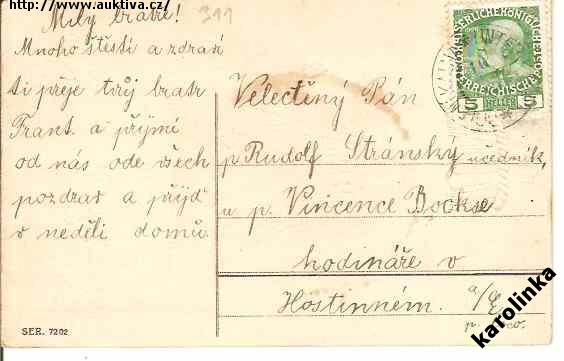 http://www.auktiva.cz/
Milý bratre! 311
Mnoho štěstí a zdraví
ti přeje tvůj bratr
Frant. a přijmi
od nás ode všech
pozdrav a přijď
v neděli domů
Velectěný Pán
p. Rudolf Stránský učedník,
u p. Vincence Bockse
hodináře v
Hostinném. a/E
SER. 7202
5 HELLER 5
karolinka